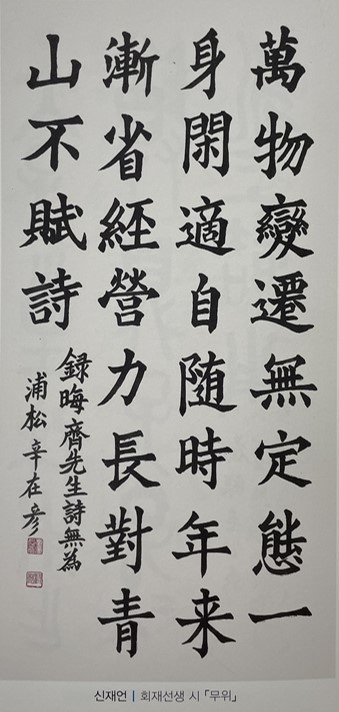 萬物變遷無定態一
身閑適自随時年来
漸省経營力長對青
山不賦詩
録晦齊先生詩無為
浦松辛在彦
신재언 | 회재선생 시 「무위」